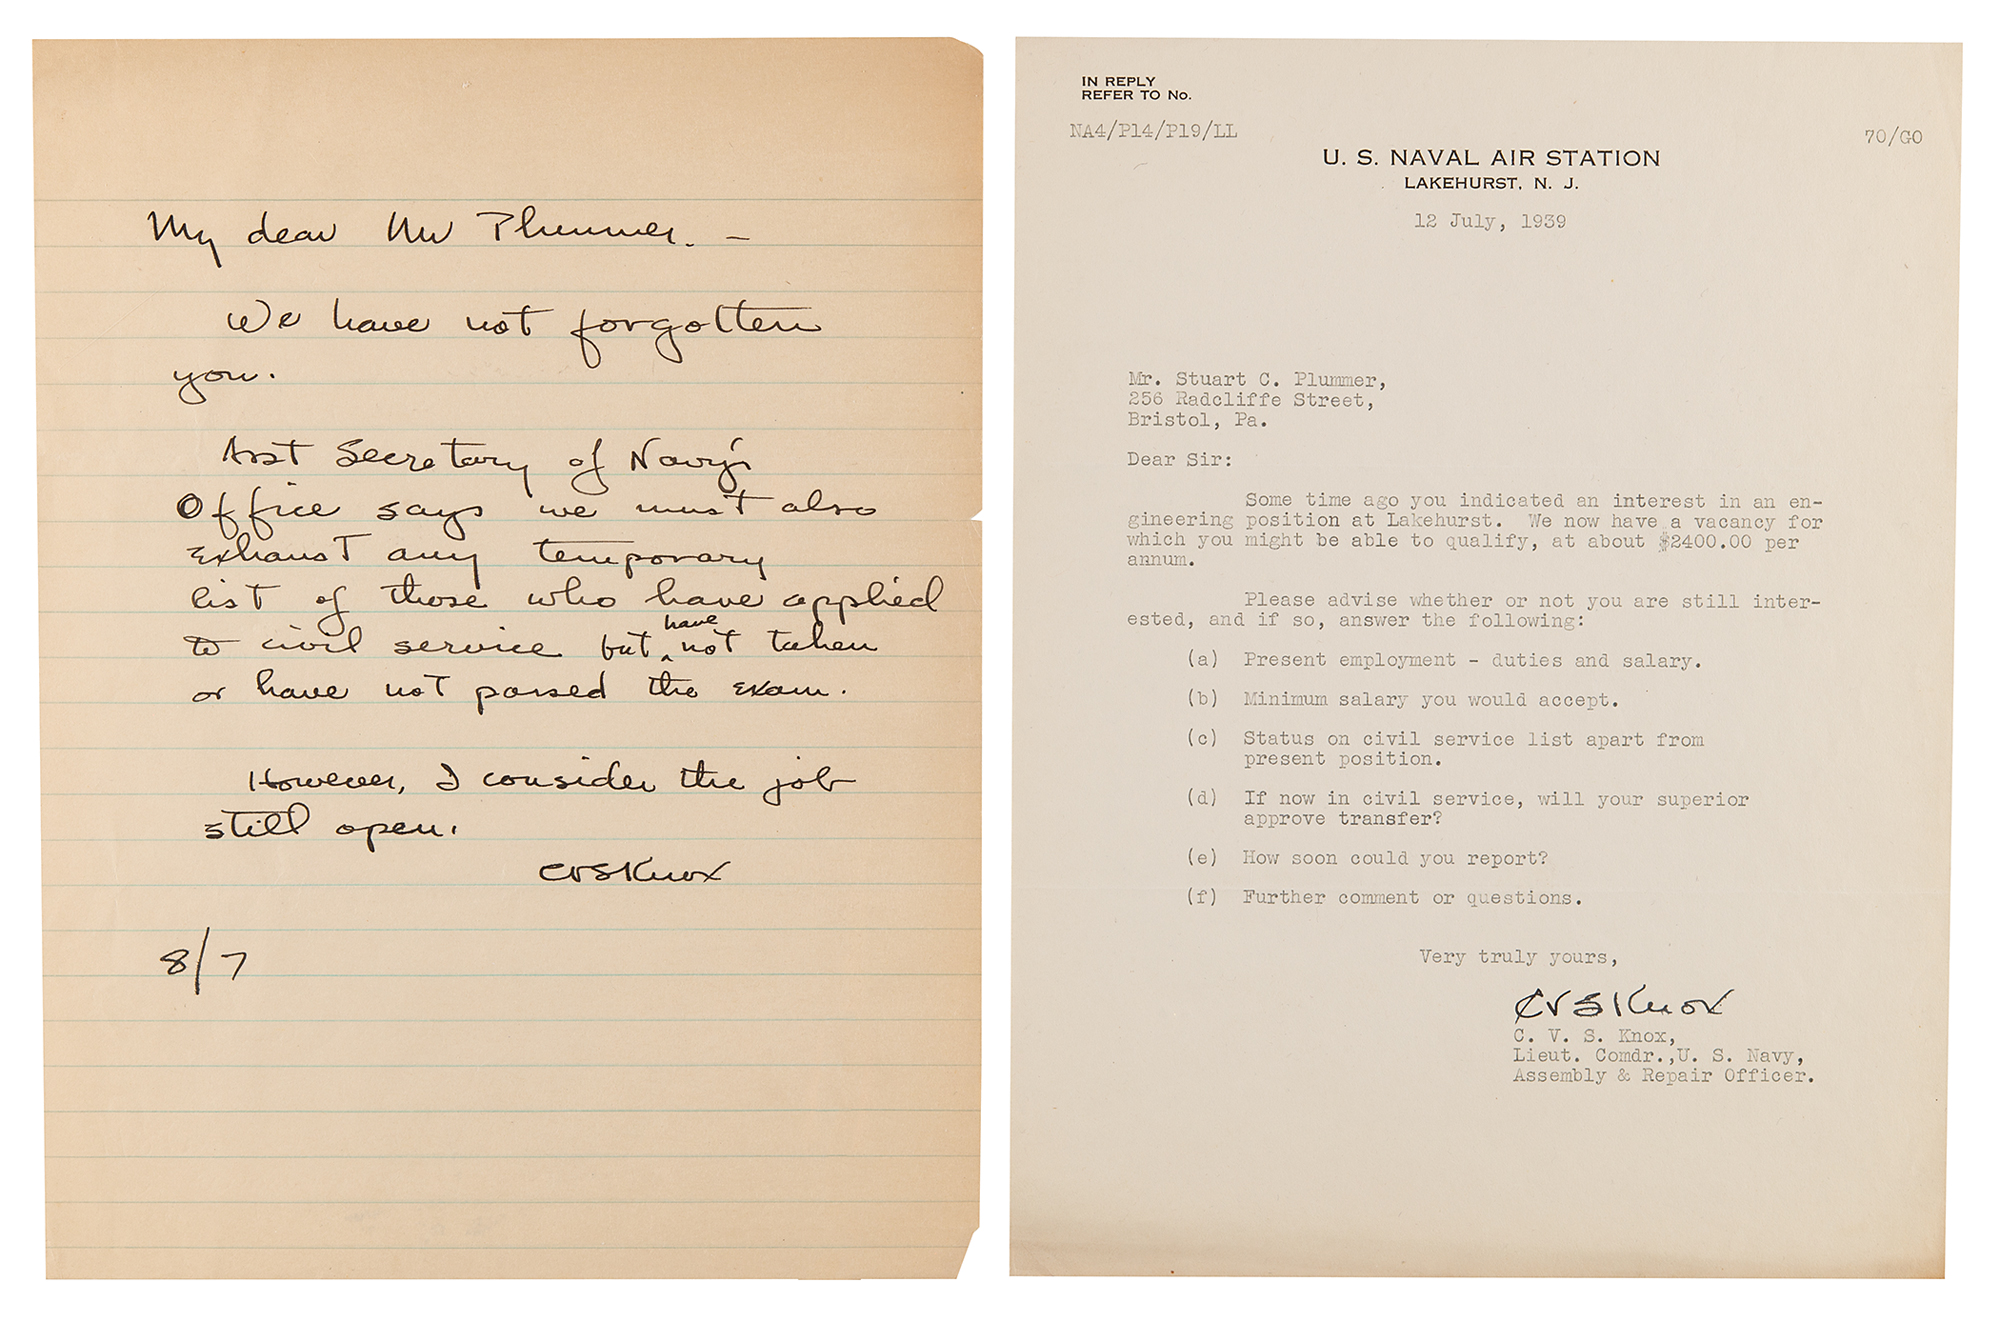 My dear Mr Plummer. –
We have not forgotten
you.
Asst Secretary of Navy's
Office says we must also
exhaust any temporary
list of those who have applied
to civil service but have not taken
or have not passed the exam.
However, I consider the job
still open.
CVSKnox
8/7
IN REPLY
REFER TO No.
NA4/P14/P19/LL
70/GO
U. S. NAVAL AIR STATION
LAKEHURST, N. J.
12 July, 1939
Mr. Stuart C. Plummer,
256 Radcliffe Street,
Bristol, Pa.
Dear Sir:
Some time ago you indicated an interest in an en-
gineering position at Lakehurst. We now have a vacancy for
which you might be able to qualify, at about $2400.00 per
annum.
Please advise whether or not you are still inter-
ested, and if so, answer the following:
(a) Present employment - duties and salary.
(b) Minimum salary you would accept.
(c) Status on civil service list apart from
present position.
(d) If now in civil service, will your superior
approve transfer?
(e) How soon could you report?
(f) Further comment or questions.
Very truly yours,
CVSKnox
C. V. S. Knox,
Lieut. Comdr.,U. S. Navy,
Assembly & Repair Officer.